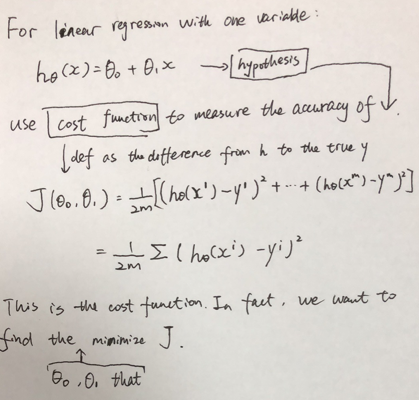 For linear regression with one variable:
hθ(x)=θ0 + θ1x → hypothesis
use cost function to measure the accuracy of
↓def as the difference from h to the true y
J(θ0,θ1) = 1/2m[(hθ(x¹)-y¹)² + ... + (hθ(xᵐ)-yᵐ)²]
= 1/2m Σ (hθ(xⁱ) - yⁱ)²
This is the cost function. In fact, we want to
find the minimize J.
↑
θ0, θ1 that